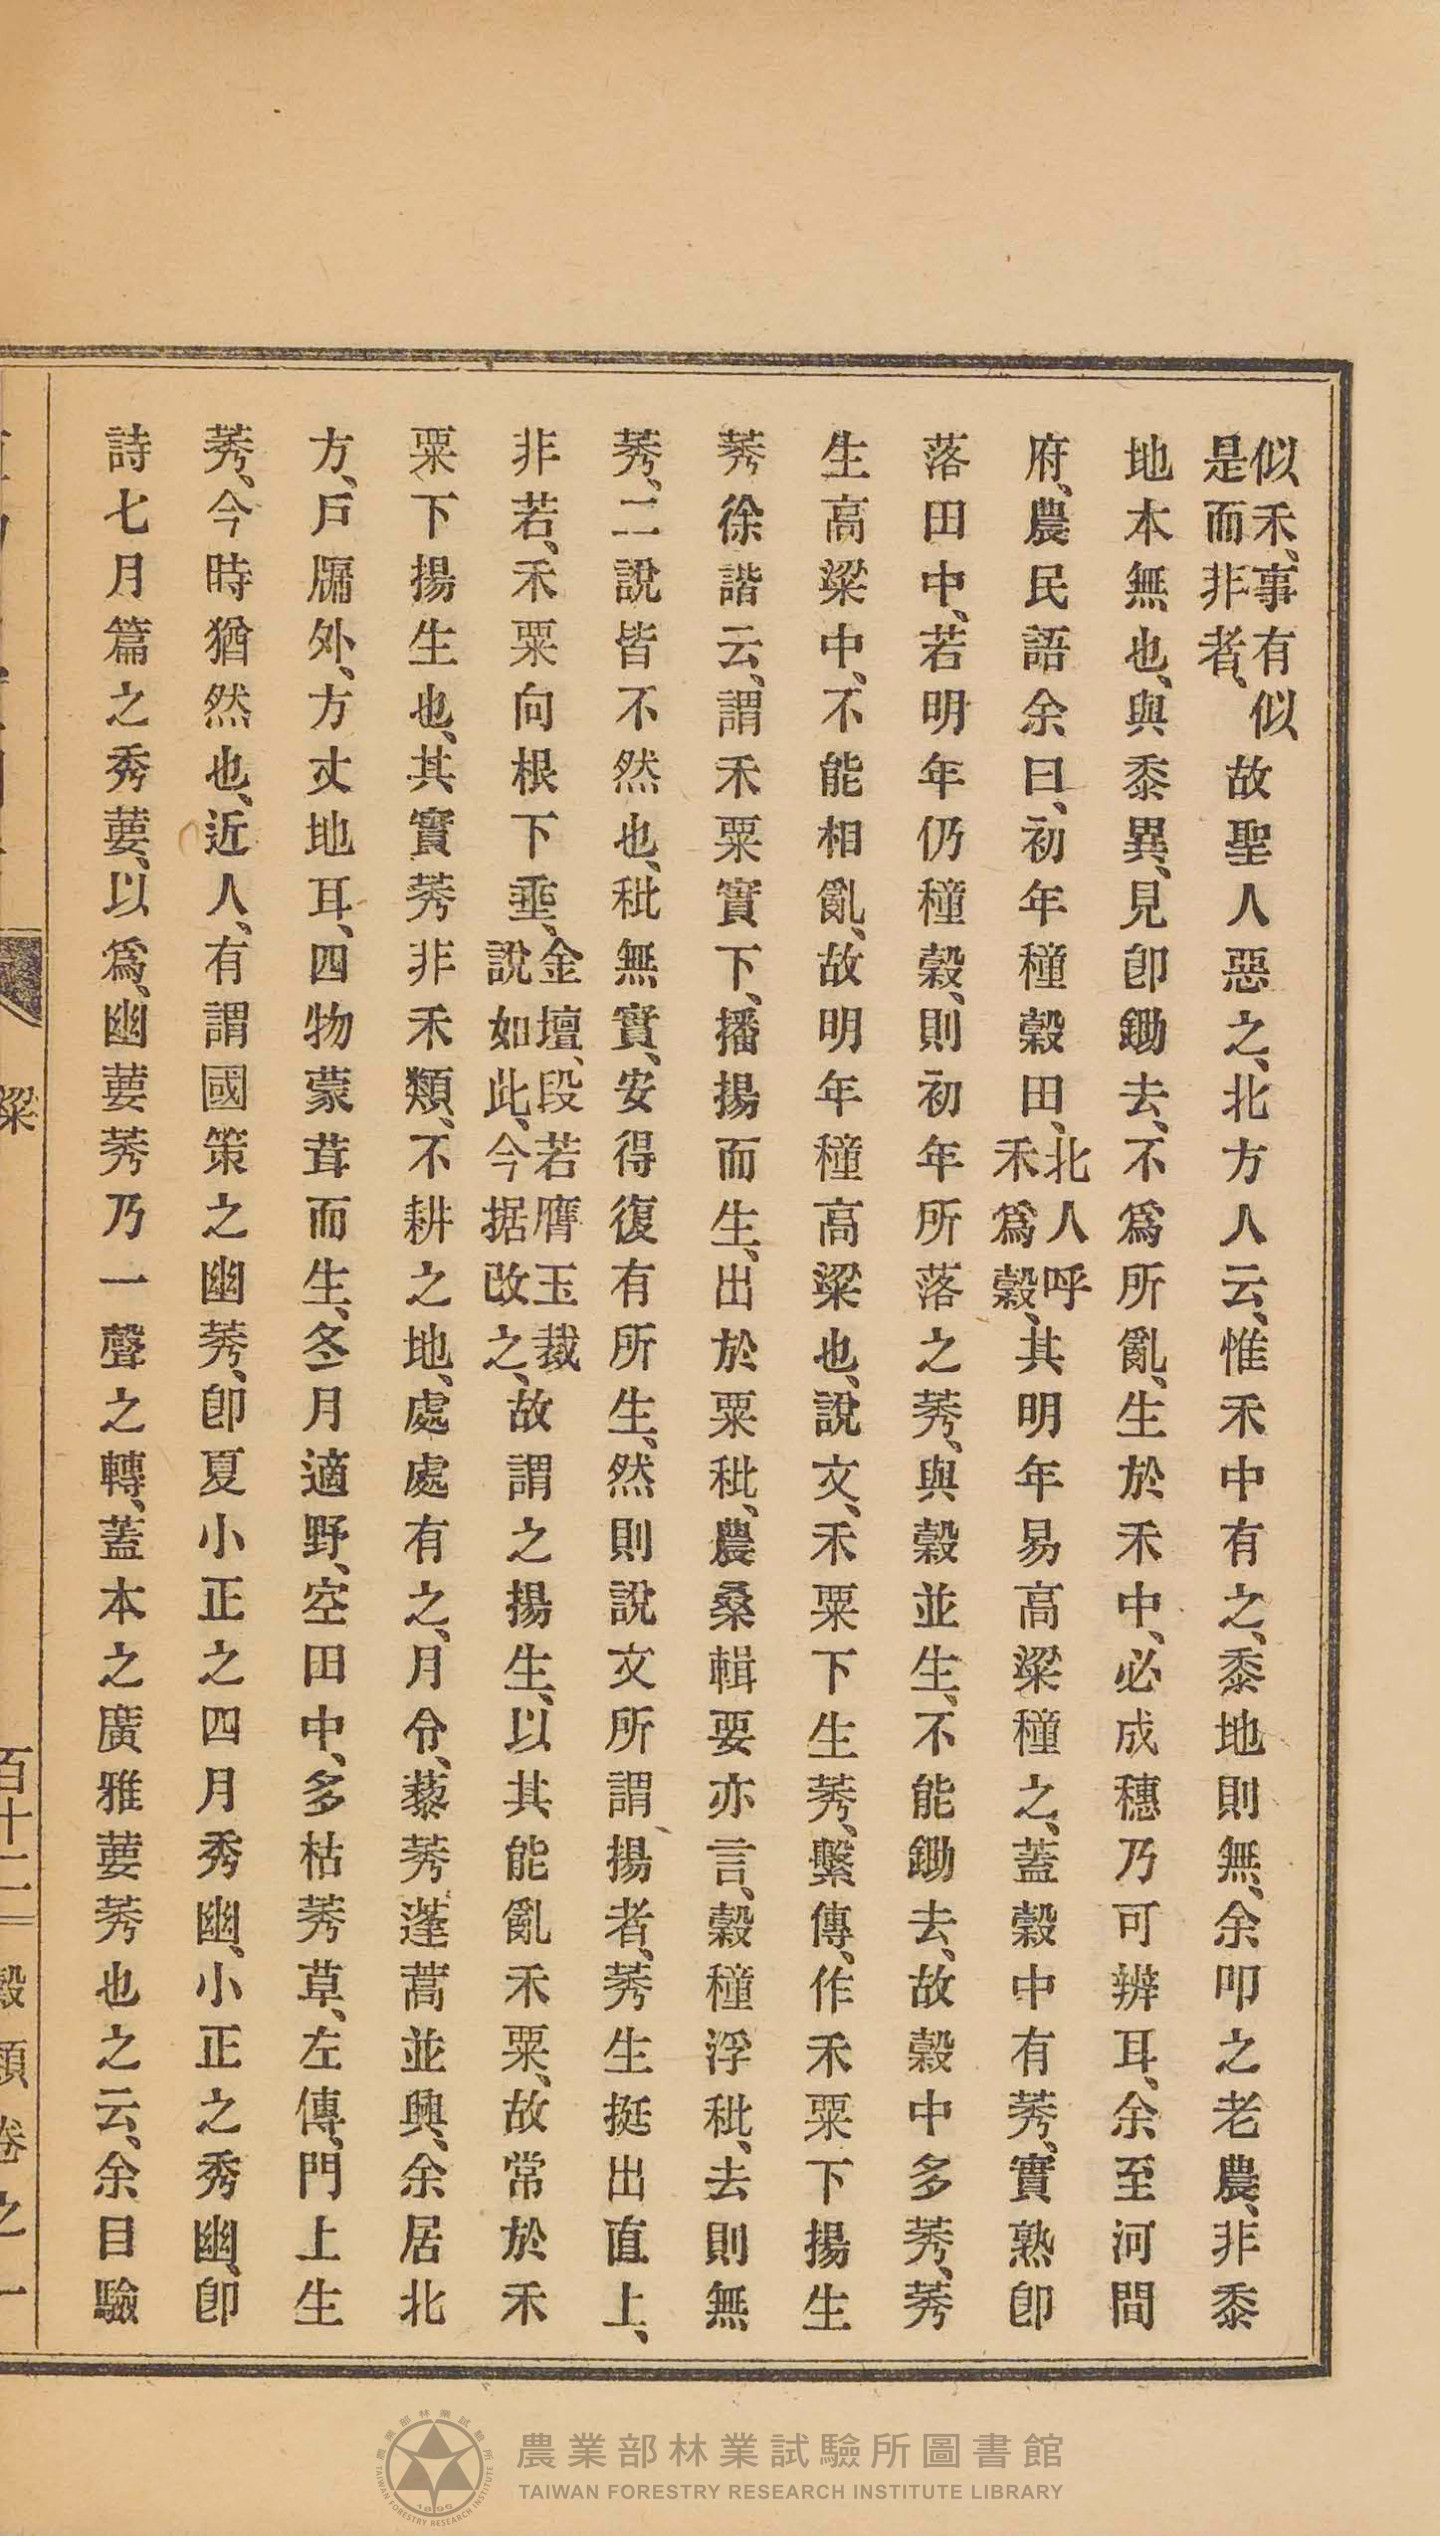 似禾、事有似是而非者、故聖人惡之、北方人云、惟禾中有之、黍地則無、余叩之老農、非黍
地本無也、與黍異、見卽鋤去、不爲所亂、生於禾中、必成穗乃可辨耳、余至河間
府、農民語余曰、初年穜穀田、北人呼禾爲穀、其明年易高粱穜之、蓋穀中有莠、實熟卽
落田中、若明年仍穜穀、則初年所落之莠、與穀並生、不能鋤去、故穀中多莠、莠
生高粱中、不能相亂、故明年穜高粱也、說文、禾粟下生莠、繫傳、作禾粟下揚生
莠徐諧云、謂禾粟實下、播揚而生、出於粟秕、農桑輯要亦言、穀穜浮秕、去則無
莠、二說皆不然也、秕無實、安得復有所生、然則說文所謂揚者、莠生挺出直上、
非若禾粟向根下垂、金壇段若膺玉裁說如此、今据改之、故謂之揚生、以其能亂禾粟、故常於禾
粟下揚生也、其實莠非禾類、不耕之地、處處有之、月令、藜莠蓬蒿並興、余居北
方、戶牖外、方丈地耳、四物蒙茸而生、冬月適野、空田中、多枯莠草、左傳、門上生
莠、今時猶然也、近人、有謂國策之幽莠、卽夏小正之四月秀幽、小正之秀幽、卽
詩七月篇之秀葽、以爲、幽葽莠乃一聲之轉、蓋本之廣雅葽莠也之云、余目驗
粱
百十二
穀類卷之一
農業部林業試驗所圖書館
TAIWAN FORESTRY RESEARCH INSTITUTE LIBRARY
農業部林業試驗所
TAIWAN FORESTRY RESEARCH INSTITUTE
1895